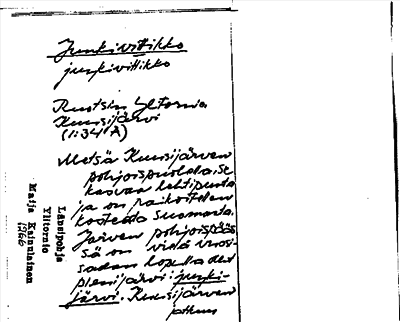 Junkivittikko
junkivittikko
Ruotsin Ylitornio
Kuusijärvi
(1:34 A)
Metsä Kuusijärven
pohjoispuolella. Se
kasvaa lehtipuuta
ja on paikoitellen
kosteata suomaata.
Järven pohjoispääs
sä on vielä vuosi-
sadan lopulla ollut
pieni järvi: junki-
järvi. Kuusijärven
jatkuu
Länsipohja
Ylitornio
Maija Kainulainen
1966